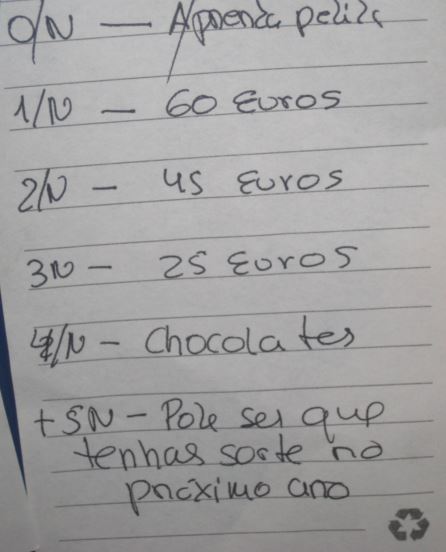 0/N — Aprenda
1/N — 60 Euros
2/N — 45 Euros
3N — 25 Euros
4/N — Chocolates
+5N — Pode ser que
tenhas sorte no
próximo ano